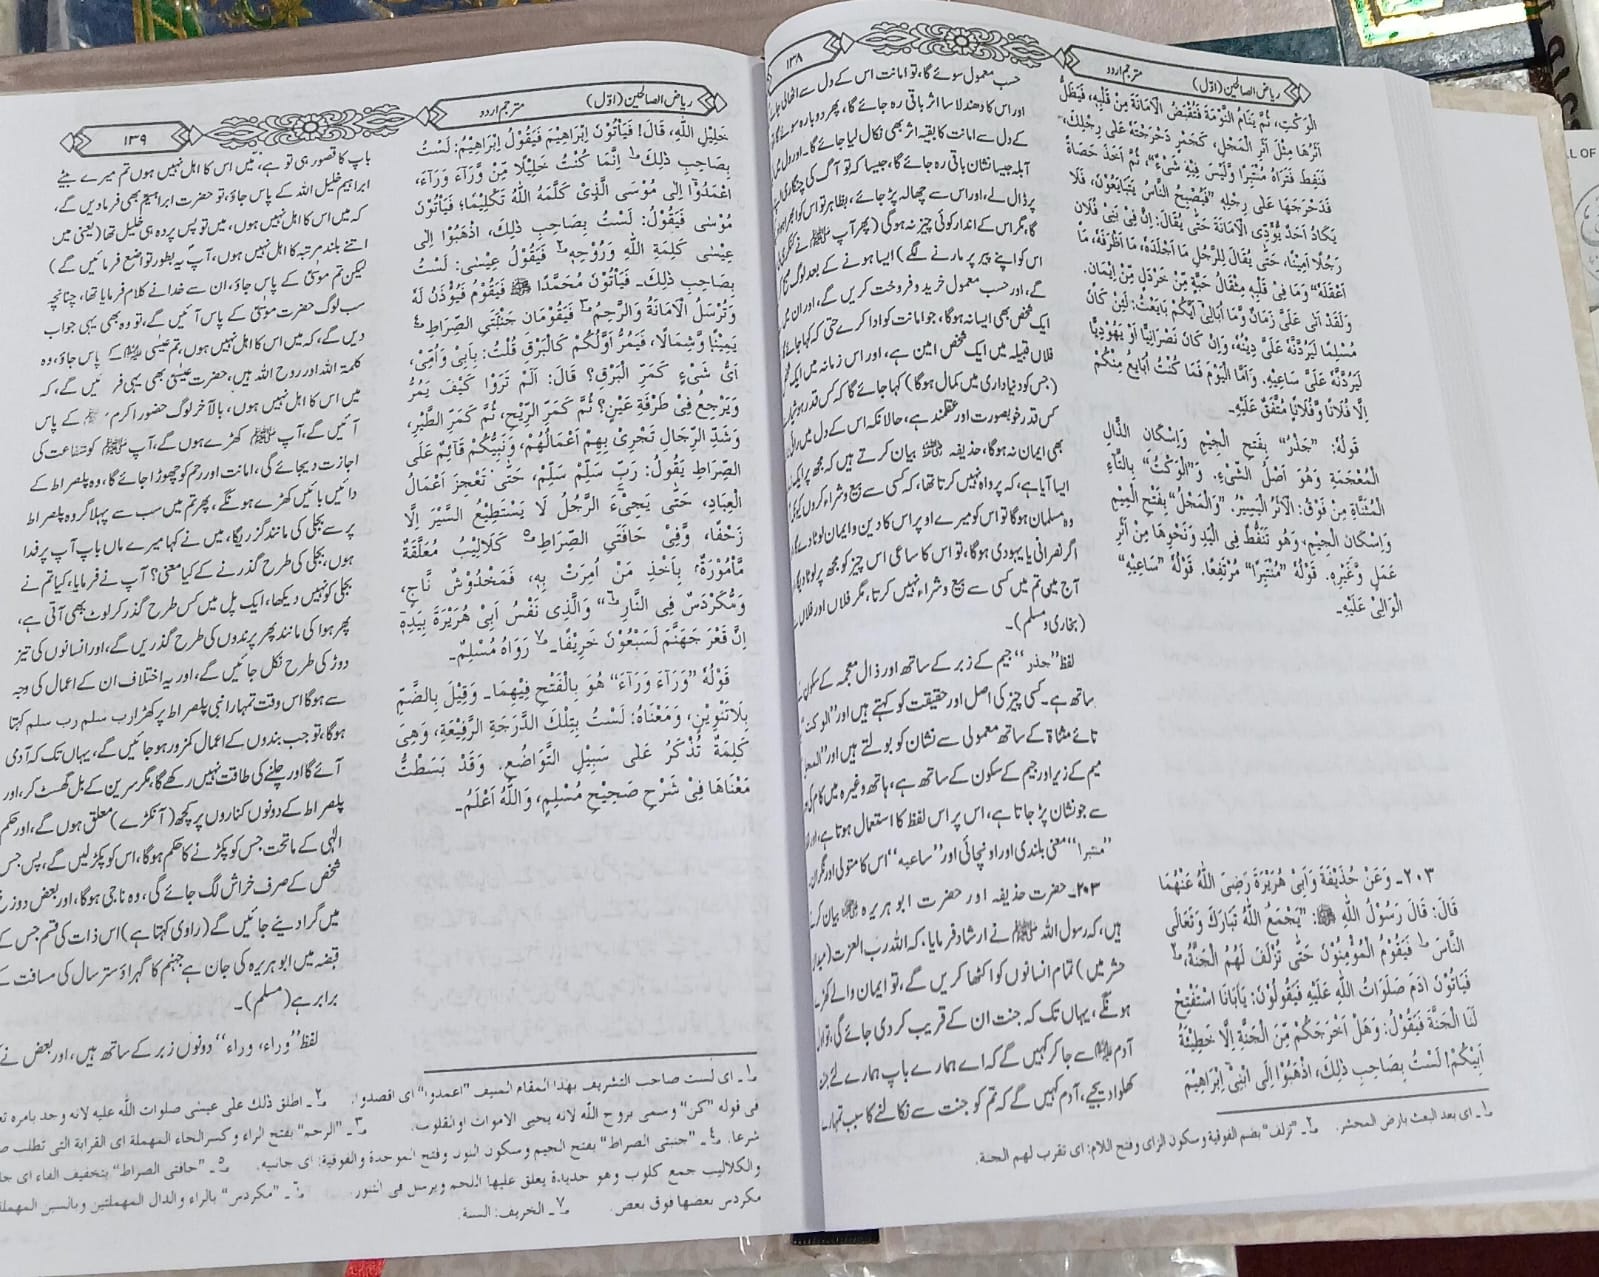 ریاض الصالحین (اوّل) مترجم اردو
۱۳۸
الْوَكْتِ، ثُمَّ يَنَامُ النَّوْمَةَ فَتُقْبَضُ الْاَمَانَةُ مِنْ قَلْبِهٖ، فَيَظَلُّ
اَثَرُهَا مِثْلَ اَثَرِ الْمَجْلِ، كَجَمْرٍ دَحْرَجْتَهٗ عَلٰى رِجْلِكَ،
فَنَفِطَ فَتَرَاهُ مُنْتَبِرًا وَّلَيْسَ فِيْهِ شَيْءٌ“، ثُمَّ اَخَذَ حَصَاةً
فَدَحْرَجَهَا عَلٰى رِجْلِهٖ ”فَيُصْبِحُ النَّاسُ يَتَبَايَعُوْنَ، فَلَا
يَكَادُ اَحَدٌ يُّؤَدِّى الْاَمَانَةَ حَتّٰى يُقَالَ: اِنَّ فِىْ بَنِىْ فُلَانٍ
رَجُلًا اَمِيْنًا، حَتّٰى يُقَالَ لِلرَّجُلِ مَا اَجْلَدَهٗ، مَا اَظْرَفَهٗ، مَا
اَعْقَلَهٗ“ وَمَا فِىْ قَلْبِهٖ مِثْقَالُ حَبَّةٍ مِّنْ خَرْدَلٍ مِّنْ اِيْمَانٍ.
وَلَقَدْ اَتٰى عَلَىَّ زَمَانٌ وَّمَا اُبَالِىْ اَيَّكُمْ بَايَعْتُ: لَئِنْ كَانَ
مُسْلِمًا لَيَرُدَّنَّهٗ عَلَىَّ دِيْنُهٗ، وَاِنْ كَانَ نَصْرَانِيًّا اَوْ يَهُوْدِيًّا
لَيَرُدَّنَّهٗ عَلَىَّ سَاعِيْهِ. وَاَمَّا الْيَوْمَ فَمَا كُنْتُ اُبَايِعُ مِنْكُمْ
اِلَّا فُلَانًا وَّفُلَانًا مُتَّفَقٌ عَلَيْهِ۔
قَوْلُهٗ: ”جَذْرُ“ بِفَتْحِ الْجِيْمِ وَاِسْكَانِ الذَّالِ
الْمُعْجَمَةِ وَهُوَ اَصْلُ الشَّيْءِ. وَ”الْوَكْتُ“ بِالتَّاءِ
الْمُثَنَّاةِ مِنْ فَوْقُ: الْاَثَرُ الْيَسِيْرُ. ”وَالْمَجْلُ“ بِفَتْحِ الْمِيْمِ
وَاِسْكَانِ الْجِيْمِ، وَهُوَ تَنَفُّطٌ فِى الْيَدِ وَنَحْوِهَا مِنْ اَثَرِ
عَمَلٍ وَّغَيْرِهٖ. قَوْلُهٗ ”مُنْتَبِرًا“ مُرْتَفِعًا. قَوْلُهٗ ”سَاعِيْهِ“
الْوَالِىْ عَلَيْهِ۔
۲۰۳۔ وَعَنْ حُذَيْفَةَ وَاَبِىْ هُرَيْرَةَ رَضِىَ اللّٰهُ عَنْهُمَا
قَالَ: قَالَ رَسُوْلُ اللّٰهِ ﷺ: ”يَجْمَعُ اللّٰهُ تَبَارَكَ وَتَعَالٰى
النَّاسَ ۱ فَيَقُوْمُ الْمُؤْمِنُوْنَ حَتّٰى تُزْلَفَ لَهُمُ الْجَنَّةُ، ۲
فَيَاْتُوْنَ اٰدَمَ صَلَوَاتُ اللّٰهِ عَلَيْهِ فَيَقُوْلُوْنَ: يَاۤاَبَانَا اسْتَفْتِحْ
لَنَا الْجَنَّةَ فَيَقُوْلُ: وَهَلْ اَخْرَجَكُمْ مِّنَ الْجَنَّةِ اِلَّا خَطِيْئَةُ
اَبِيْكُمْ! لَسْتُ بِصَاحِبِ ذٰلِكَ، اذْهَبُوْا اِلَى ابْنِىْ اِبْرَاهِيْمَ
حسب معمول سوئے گا، تو امانت اس کے دل سے اٹھالی
اور اس کا دھندلا سا اثر باقی رہ جائے گا، پھر دوبارہ سوئے
کے دل سے امانت کا بقیہ اثر بھی نکال لیا جائے گا۔ اور دل
آبلہ جیسا نشان باقی رہ جائے گا، جیسا کہ تو آگ کی چنگاری
پر ڈال لے، اور اس سے چھالہ پڑ جائے، بظاہر تو اس کو
گا، مگر اس کے اندار کوئی چیز نہ ہوگی (پھر آپ ﷺ نے
اس کو اپنے پیر پر مارنے لگے) ایسا ہونے کے بعد لوگ
گے، اور حسب معمول خرید و فروخت کریں گے، اور ان
ایک شخص بھی ایسا نہ ہوگا، جو امانت کو ادا کرے حتیٰ کہ کہا جائے گا
فلاں قبیلہ میں ایک شخص امین ہے، اور اس زمانہ میں ایک
(جس کو دنیاداری میں کمال ہوگا) کہا جائے گا کہ کس قدر ہوشیار
کس قدر خوبصورت اور عقلمند ہے، حالانکہ اس کے دل میں رائی
بھی ایمان نہ ہوگا، حذیفہ بیان کرتے ہیں کہ مجھ پر ایک
ایسا آیا ہے، کہ پرواہ نہیں کرتا تھا، کہ کسی سے بیع و شراء کروں
وہ مسلمان ہوگا تو اس کو میرے اوپر اس کا دین و ایمان لوٹا دے گا
اگر نصرانی یا یہودی ہوگا، تو اس کا ساعی اس چیز کو مجھ پر لوٹا
آج میں تم میں کسی سے بیع و شراء نہیں کرتا، مگر فلاں اور فلاں
(بخاری و مسلم)۔
لفظ ”جذر“ جیم کے زبر کے ساتھ اور ذال معجمہ کے سکون
ساتھ ہے۔ کسی چیز کی اصل اور حقیقت کو کہتے ہیں اور ”الوکت“
تائے مثناة کے ساتھ معمولی سے نشان کو بولتے ہیں اور
میم کے زبر اور جیم کے سکون کے ساتھ ہے، ہاتھ وغیرہ میں کام
سے جو نشان پڑ جاتا ہے، اس پر اس لفظ کا استعمال ہوتا ہے،
”منتبرا“ معنی بلندی اور اونچائی اور ”ساعیہ“ اس کا متولی اور نگران
۲۰۳۔ حضرت حذیفہ اور حضرت ابو ہریرہ بیان
ہیں، کہ رسول اللہ ﷺ نے ارشاد فرمایا، کہ اللہ رب العزت (میدان
حشر میں) تمام انسانوں کو اکٹھا کریں گے، تو ایمان والے کھڑے
ہونگے، یہاں تک کہ جنت ان کے قریب کر دی جائے گی،
آدم سے جا کر کہیں گے کہ اے ہمارے باپ ہمارے لئے
کھلوا دیجیے، آدم کہیں گے کہ تم کو جنت سے نکالنے کا سبب تمہارے
۱۔ ای بعد البعث بارض المحشر. ۲۔ ”تزلف“ بضم الفوقیة وسکون الزای وفتح اللام: ای تقرب لهم الجنة.
ریاض الصالحین (اوّل) مترجم اردو
۱۳۹
خَلِيْلِ اللّٰهِ، قَالَ! فَيَاْتُوْنَ اِبْرَاهِيْمَ فَيَقُوْلُ اِبْرَاهِيْمُ: لَسْتُ
بِصَاحِبِ ذٰلِكَ ۱ اِنَّمَا كُنْتُ خَلِيْلًا مِّنْ وَّرَآءَ وَرَآءَ،
اعْمَدُوْا اِلٰى مُوْسَى الَّذِىْ كَلَّمَهُ اللّٰهُ تَكْلِيْمًا؛ فَيَاْتُوْنَ
مُوْسٰى فَيَقُوْلُ: لَسْتُ بِصَاحِبِ ذٰلِكَ، اذْهَبُوْا اِلٰى
عِيْسٰى كَلِمَةِ اللّٰهِ وَرُوْحِهٖ ۲ فَيَقُوْلُ عِيْسٰى: لَسْتُ
بِصَاحِبِ ذٰلِكَ۔ فَيَاْتُوْنَ مُحَمَّدًا ﷺ فَيَقُوْمُ فَيُؤْذَنُ لَهٗ
وَتُرْسَلُ الْاَمَانَةُ وَالرَّحِمُ ۳ فَيَقُوْمَانِ جَنْبَتَىِ الصِّرَاطِ ۴
يَمِيْنًا وَّشِمَالًا، فَيَمُرُّ اَوَّلُكُمْ كَالْبَرْقِ قُلْتُ: بِاَبِىْ وَاُمِّىْ،
اَىُّ شَىْءٍ كَمَرِّ الْبَرْقِ؟ قَالَ: اَلَمْ تَرَوْا كَيْفَ يَمُرُّ
وَيَرْجِعُ فِىْ طَرْفَةِ عَيْنٍ؟ ثُمَّ كَمَرِّ الرِّيْحِ، ثُمَّ كَمَرِّ الطَّيْرِ،
وَشَدِّ الرِّجَالِ تَجْرِىْ بِهِمْ اَعْمَالُهُمْ، وَنَبِيُّكُمْ قَآئِمٌ عَلَى
الصِّرَاطِ يَقُوْلُ: رَبِّ سَلِّمْ سَلِّمْ، حَتّٰى تَعْجِزَ اَعْمَالُ
الْعِبَادِ، حَتّٰى يَجِىْءَ الرَّجُلُ لَا يَسْتَطِيْعُ السَّيْرَ اِلَّا
زَحْفًا، وَّفِىْ حَافَتَىِ الصِّرَاطِ ۵ كَلَالِيْبُ مُعَلَّقَةٌ
مَّاْمُوْرَةٌ، بِاَخْذِ مَنْ اُمِرَتْ بِهٖ، فَمَخْدُوْشٌ نَّاجٍ،
وَمُكَرْدَسٌ فِى النَّارِ ۶“ وَالَّذِىْ نَفْسُ اَبِىْ هُرَيْرَةَ بِيَدِهٖ
اِنَّ قَعْرَ جَهَنَّمَ لَسَبْعُوْنَ خَرِيْفًا۔ ۷ رَوَاهُ مُسْلِمٌ۔
قَوْلُهٗ ”وَرَآءَ وَرَآءَ“ هُوَ بِالْفَتْحِ فِيْهِمَا۔ وَقِيْلَ بِالضَّمِّ
بِلَاتَنْوِيْنٍ، وَمَعْنَاهُ: لَسْتُ بِتِلْكَ الدَّرَجَةِ الرَّفِيْعَةِ، وَهِىَ
كَلِمَةٌ تُذْكَرُ عَلٰى سَبِيْلِ التَّوَاضُعِ. وَقَدْ بَسَطْتُّ
مَعْنَاهَا فِىْ شَرْحِ صَحِيْحِ مُسْلِمٍ، وَاللّٰهُ اَعْلَمُ۔
باپ کا قصور ہی تو ہے، میں اس کا اہل نہیں ہوں تم میرے بیٹے
ابراہیم خلیل اللہ کے پاس جاؤ، تو حضرت ابراہیم بھی فرمادیں گے،
کہ میں اس کا اہل نہیں ہوں، میں تو پس پردہ ہی خلیل تھا (یعنی میں
اتنے بلند مرتبہ کا اہل نہیں ہوں، آپ یہ بطور تواضع فرمائیں گے)
لیکن تم موسیٰ کے پاس جاؤ، ان سے خدا نے کلام فرمایا تھا، چنانچہ
سب لوگ حضرت موسیٰ کے پاس آئیں گے، تو وہ بھی یہی جواب
دیں گے، کہ میں اس کا اہل نہیں ہوں، تم عیسیٰ کے پاس جاؤ، وہ
کلمۃ اللہ اور روح اللہ ہیں، حضرت عیسیٰ بھی یہی فرمائیں گے، کہ
میں اس کا اہل نہیں ہوں، بالآخر لوگ حضور اکرم ﷺ کے پاس
آئیں گے، آپ ﷺ کھڑے ہوں گے، آپ ﷺ کو شفاعت کی
اجازت دیجائے گی، امانت اور رحم کو چھوڑا جائے گا، وہ پلصراط کے
دائیں بائیں کھڑے ہونگے، پھر تم میں سب سے پہلا گروہ پلصراط
پر سے بجلی کی مانند گزریگا، میں نے کہا میرے ماں باپ آپ پر فدا
ہوں، بجلی کی طرح گذرنے کے کیا معنی؟ آپ نے فرمایا، کیا تم نے
بجلی کو نہیں دیکھا، ایک پل میں کس طرح گذر کر لوٹ بھی آتی ہے،
پھر ہوا کی مانند پھر پرندوں کی طرح گذریں گے، اور انسانوں کی تیز
دوڑ کی طرح نکل جائیں گے، اور یہ اختلاف ان کے اعمال کی وجہ
سے ہوگا اس وقت تمہارا نبی پلصراط پر کھڑا رب سلم رب سلم کہتا
ہوگا، تو جب بندوں کے اعمال کمزور ہو جائیں گے، یہاں تک کہ آدمی
آئے گا اور چلنے کی طاقت نہیں رکھے گا، مگر سرین کے بل گھسٹ کر، اور
پلصراط کے دونوں کناروں پر کچھ (آنکڑے) معلق ہوں گے، اور حکم
الٰہی کے ماتحت جس کو پکڑنے کا حکم ہوگا، اس کو پکڑ لیں گے، پس جس
شخص کے صرف خراش لگ جائے گی، وہ ناجی ہوگا، اور بعض دوزخ
میں گرا دیئے جائیں گے (راوی کہتا ہے) اس ذات کی قسم جس کے
قبضہ میں ابو ہریرہ کی جان ہے جہنم کا گہراؤ ستر سال کی مسافت کے
برابر ہے (مسلم)۔
لفظ ”وراء، وراء“ دونوں زبر کے ساتھ ہیں، اور بعض نے
۱۔ ای لست صاحب التشریف بهذا المقام المنیف ”اعمدوا“ ای اقصدوا. ۲۔ اطلق ذلک علی عیسٰی صلوات اللّٰه علیه لانه وجد بامره
فی قوله ”کن“ وسمی بروح اللّٰه لانه یحیی الاموات اوالقلوب. ۳۔ ”الرحم“ بفتح الراء وکسرالحاء المهملة ای القرابة التی تطلب
شرعا. ۴۔ ”جنبتی الصراط“ بفتح الجیم وسکون النون وفتح الموحدة والفوقیة: ای جانبیه. ۵۔ ”حافتی الصراط“ بتخفیف الفاء ای
والکلالیب جمع کلوب وهو حدیدة یعلق علیها اللحم ویرسل فی التنور. ۶۔ ”مکردس“ بالراء والدال المهملتین وبالسین
مکردس بعضها فوق بعض. ۷۔ الخریف: السنة.
AL OF